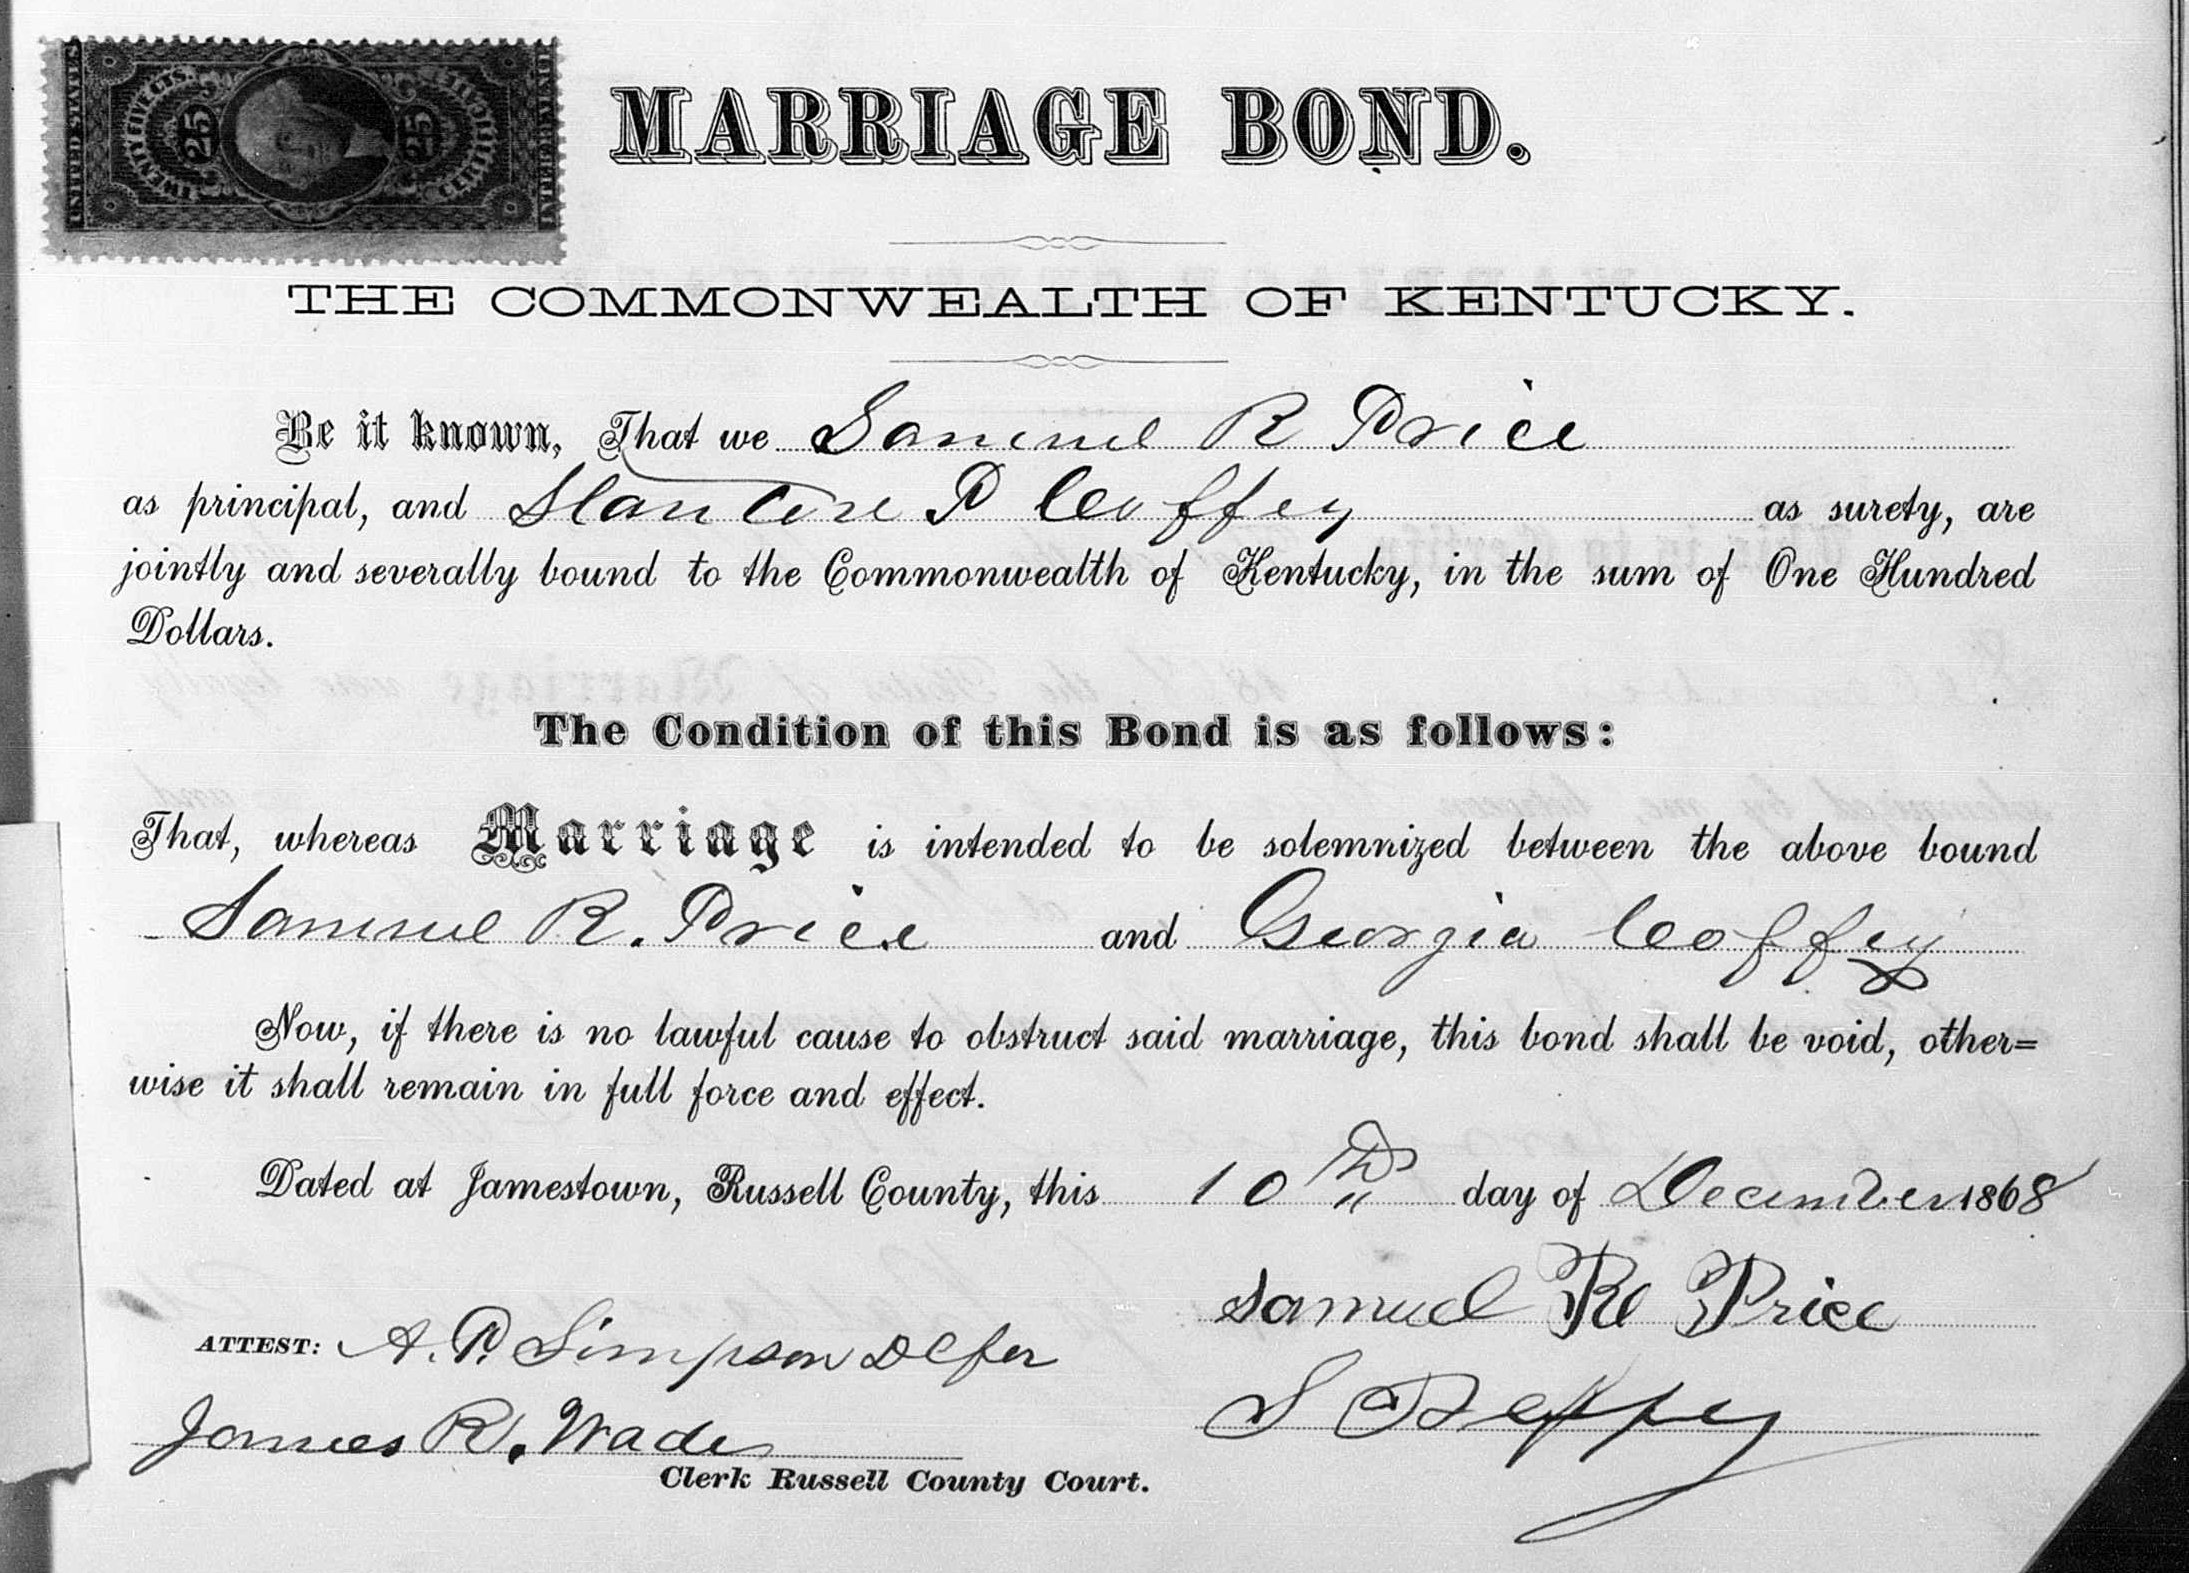 UNITED STATES
TWENTY FIVE CTS.
25
25
CERTIFICATE
INTER. REV.
MARRIAGE BOND.
THE COMMONWEALTH OF KENTUCKY.
Be it known, That we Samuel R Price
as principal, and P Coffey as surety, are
jointly and severally bound to the Commonwealth of Kentucky, in the sum of One Hundred
Dollars.
The Condition of this Bond is as follows:
That, whereas Marriage is intended to be solemnized between the above bound
Samuel R. Price and Georgia Coffey
Now, if there is no lawful cause to obstruct said marriage, this bond shall be void, other=
wise it shall remain in full force and effect.
Dated at Jamestown, Russell County, this 10th day of December 1868
Samuel R Price
ATTEST: A. P. Simpson
S
James R. Wade
Clerk Russell County Court.